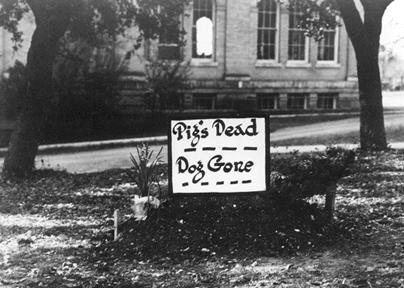 Pig's Dead
Dog Gone